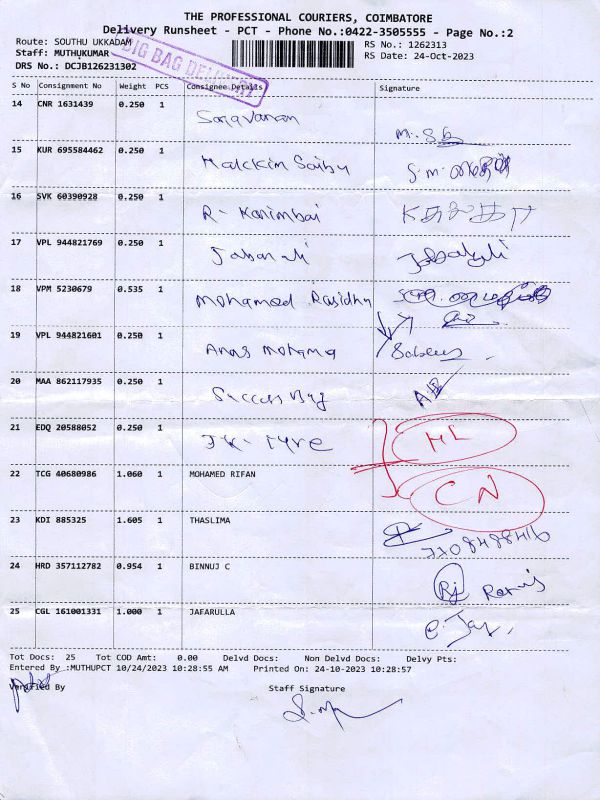 THE PROFESSIONAL COURIERS, COIMBATORE
Delivery Runsheet - PCT - Phone No.:0422-3505555 - Page No.:2
Route: SOUTHU UKKADAM
RS No.: 1262313
Staff: MUTHUKUMAR
RS Date: 24-Oct-2023
DRS No.: DCJB126231302
BIG BAG DELIVERY
S No Consignment No Weight PCS Consignee Details Signature
14 CNR 1631439 0.250 1 Saravanan
15 KUR 695584462 0.250 1 Malckim Saibu S.M.
16 SVK 60390928 0.250 1 R- Kanimbai
17 VPL 944821769 0.250 1 Jabarali
18 VPM 5230679 0.535 1 Mohamed Rasidhu
19 VPL 944821601 0.250 1 Anas Mohama
20 MAA 862117935 0.250 1 Success Bag
21 EDQ 20588052 0.250 1 JK-Tyre HL
22 TCG 40680986 1.060 1 MOHAMED RIFAN CN
23 KDI 885325 1.605 1 THASLIMA
24 HRD 357112782 0.954 1 BINNUJ C Rj
25 CGL 161001331 1.000 1 JAFARULLA
Tot Docs: 25 Tot COD Amt: 0.00 Delvd Docs: Non Delvd Docs: Delvy Pts:
Entered By :MUTHUPCT 10/24/2023 10:28:55 AM Printed On: 24-10-2023 10:28:57
Verified By Staff Signature